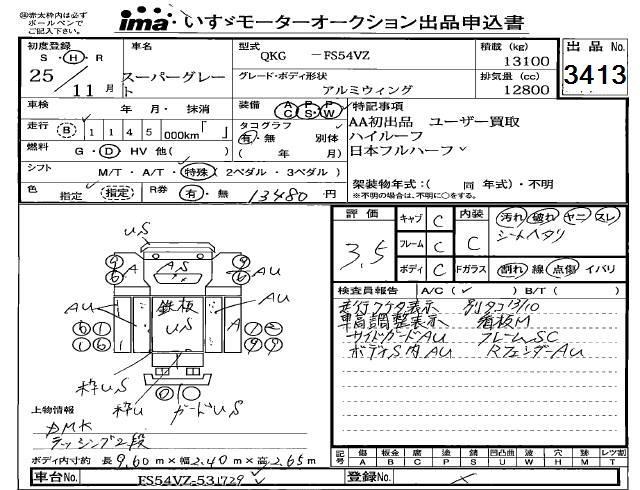 ㊟赤太枠内は必ず
ボールペンで
ご記入下さい。
ima いすゞモーターオークション出品申込書
初度登録 車名 型式 QKG -FS54VZ 積載(kg) 13100 出品No.
S・H・R 25 / 11 月 スーパーグレート グレード・ボディ形状 アルミウィング 排気量(cc) 12800 3413
車検 年 月・ 抹消 装備 AC PS PW 特記事項
走行 B 1 1 4 5 000km「 」 タコグラフ 有・無 別体 AA初出品 ユーザー買取
ハイルーフ
燃料 G・D・HV 他( ) ( 年 月) 日本フルハーフ
シフト M/T・A/T・特殊(2ペダル・3ペダル) 架装物年式:( 同 年式)・不明
色 指定 指定 R券 有・無 13480 円 ※不明の場合は、不明に○をする。
評価 3.5 キャブ C 内装 C 汚れ 破れ ヤニ スレ
シートヘタリ
フレーム C
ボディ C Fガラス 割れ 線 点傷 イバリ
検査員報告 A/C( ✓ ) B/T( )
走行フケタ表示 別タコ13/10
車高調整表示 看板M
サイドガードAU フレームSC
ボディS内AU RフェンダーAU
US
A AS AU
AU 鉄板 US A AU
枠US
枠U ガードUS
上物情報
DMK
ラッシング2段
ボディ内寸約 長 9.60m×幅 2.40m×高 2.65m
記号 傷 A 板金 B 腐 C 塗 P 錆 S 凹凸曲 U 波 W 穴 H 跡 M 補 T レツ割
車台No. FS54VZ-531729 登録No.